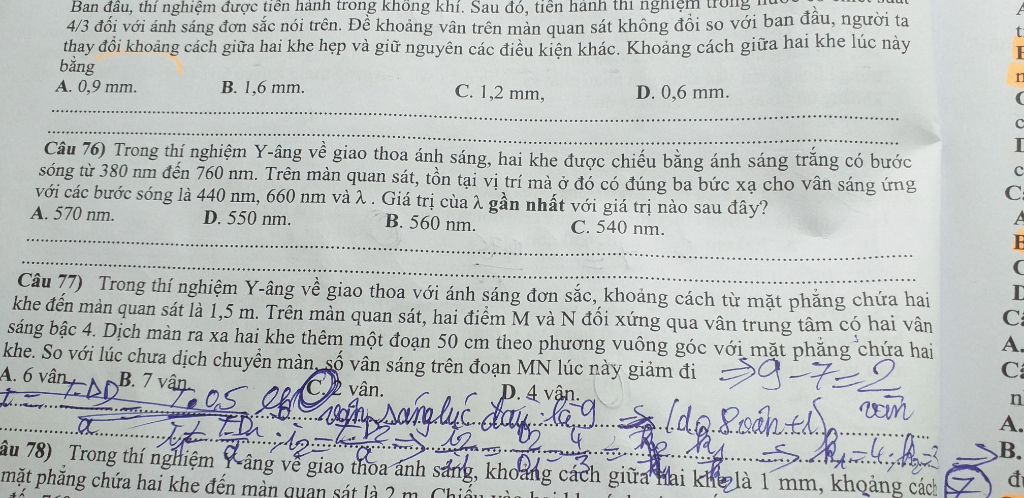 Ban đầu, thí nghiệm được tiến hành trong không khí. Sau đó, tiến hành thí nghiệm trong
4/3 đối với ánh sáng đơn sắc nói trên. Để khoảng vân trên màn quan sát không đổi so với ban đầu, người ta
thay đổi khoảng cách giữa hai khe hẹp và giữ nguyên các điều kiện khác. Khoảng cách giữa hai khe lúc này
bằng
A. 0,9 mm. B. 1,6 mm. C. 1,2 mm, D. 0,6 mm.
Câu 76) Trong thí nghiệm Y-âng về giao thoa ánh sáng, hai khe được chiếu bằng ánh sáng trắng có bước
sóng từ 380 nm đến 760 nm. Trên màn quan sát, tồn tại vị trí mà ở đó có đúng ba bức xạ cho vân sáng ứng
với các bước sóng là 440 nm, 660 nm và λ . Giá trị của λ gần nhất với giá trị nào sau đây?
A. 570 nm. D. 550 nm. B. 560 nm. C. 540 nm.
Câu 77) Trong thí nghiệm Y-âng về giao thoa với ánh sáng đơn sắc, khoảng cách từ mặt phẳng chứa hai
khe đến màn quan sát là 1,5 m. Trên màn quan sát, hai điểm M và N đối xứng qua vân trung tâm có hai vân
sáng bậc 4. Dịch màn ra xa hai khe thêm một đoạn 50 cm theo phương vuông góc với mặt phẳng chứa hai
khe. So với lúc chưa dịch chuyển màn, số vân sáng trên đoạn MN lúc này giảm đi => 9 - 7 = 2
A. 6 vân. B. 7 vân. C. 2 vân. D. 4 vân. vân
sáng lúc đầu là 9
âu 78) Trong thí nghiệm Y-âng về giao thoa ánh sáng, khoảng cách giữa hai khe là 1 mm, khoảng cách
mặt phẳng chứa hai khe đến màn quan sát là 2 m. Chiếu